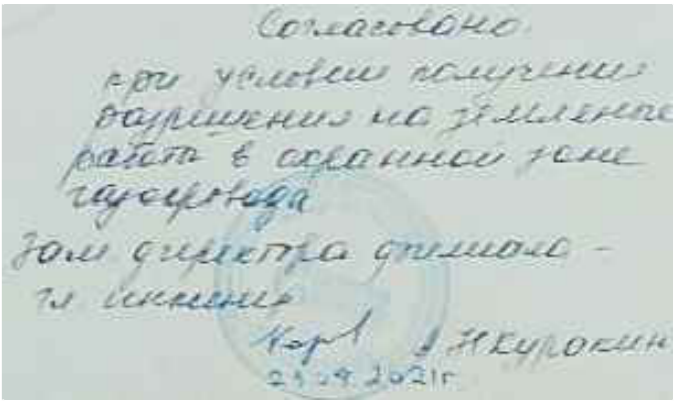 Согласовано.
при условии получения
разрешения на земляные
работы в охранной зоне
газопровода
Зам директора филиала -
гл инженер
Куракин
2021г